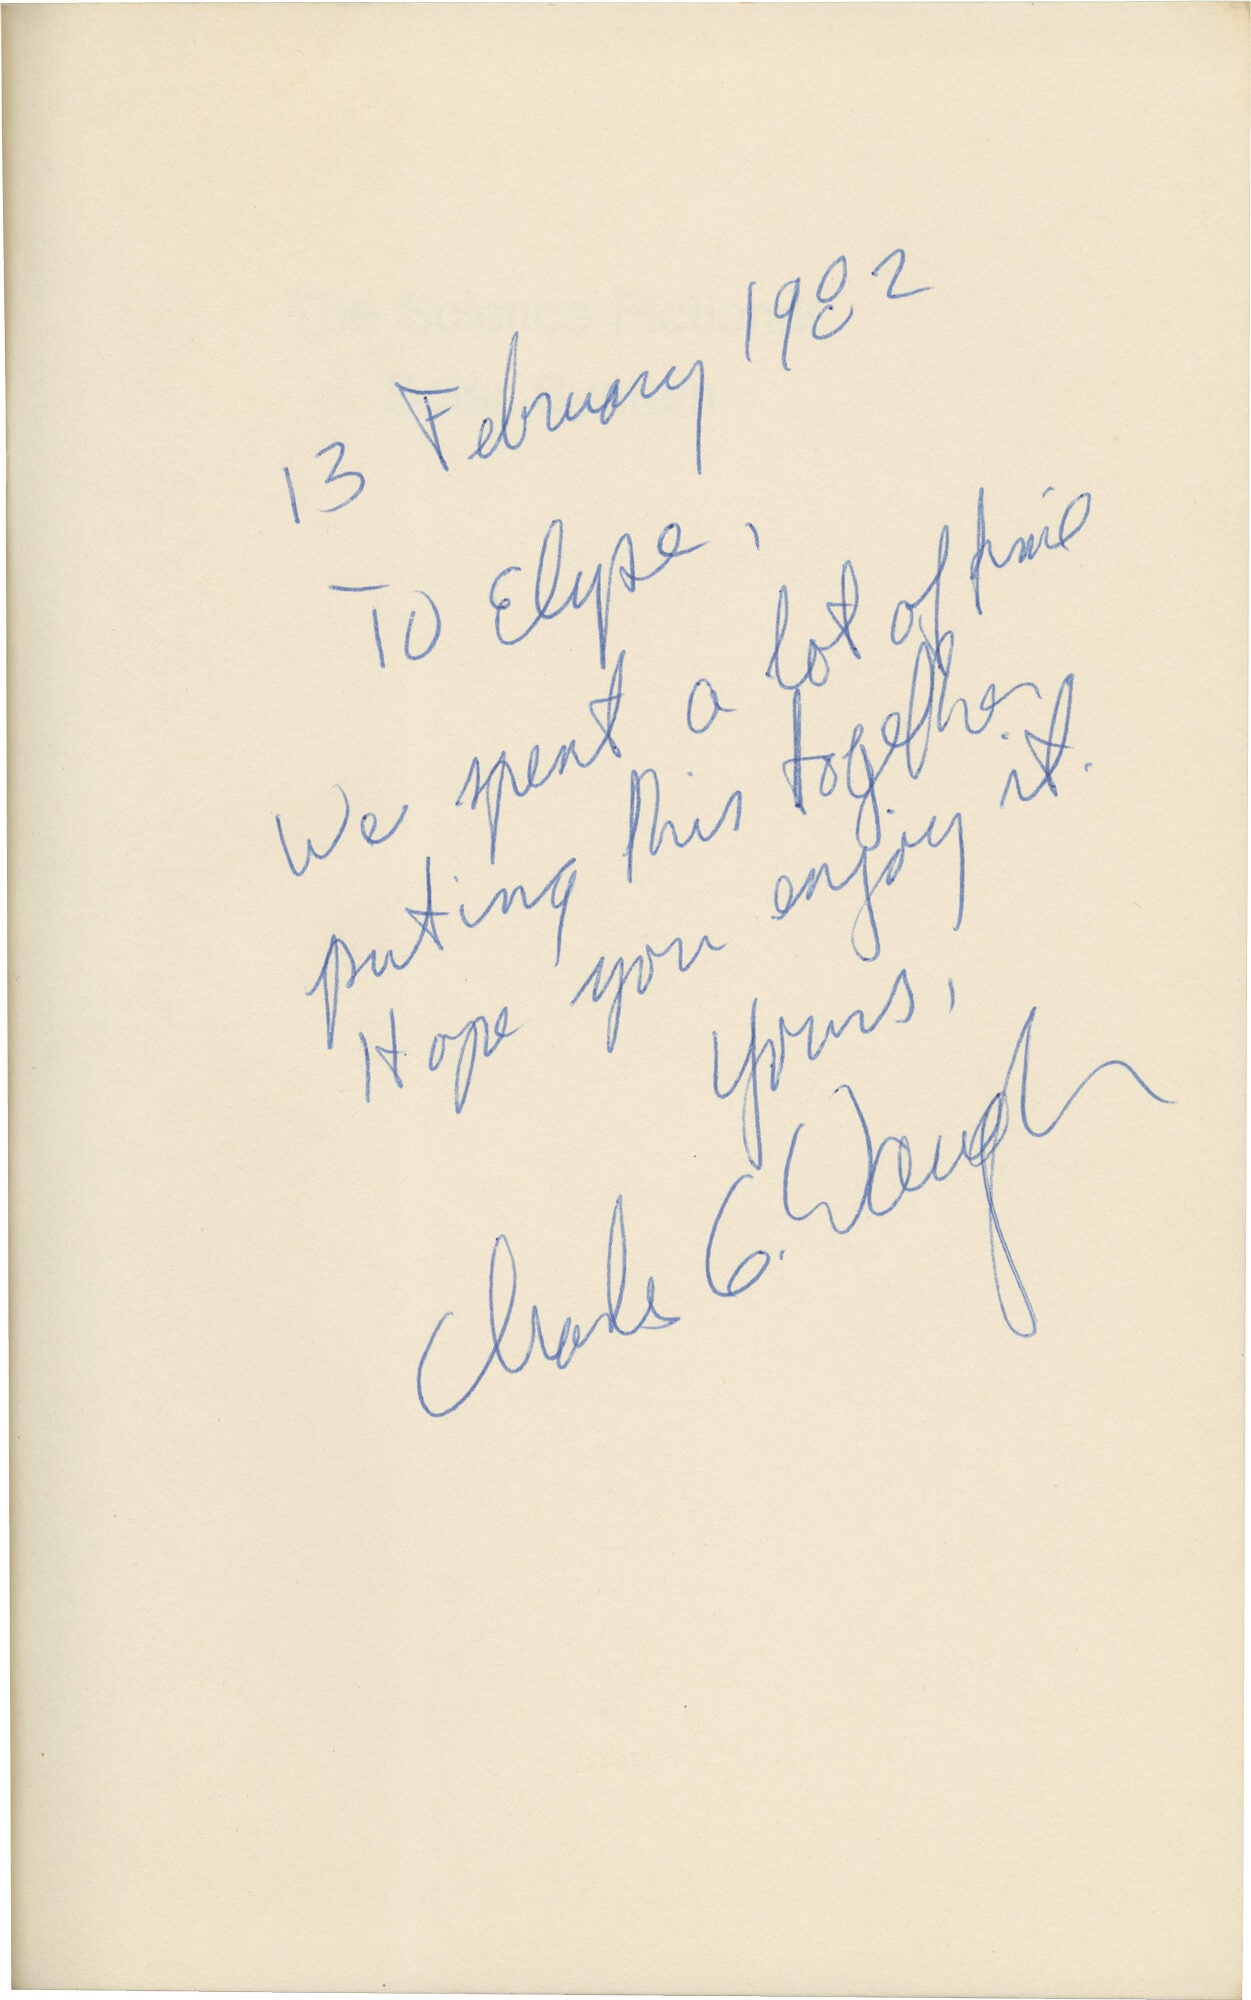 13 February 1982
To Elyse,
We spent a lot of time
puting this together.
Hope you enjoy it.
Yours,
Charles G. Waugh